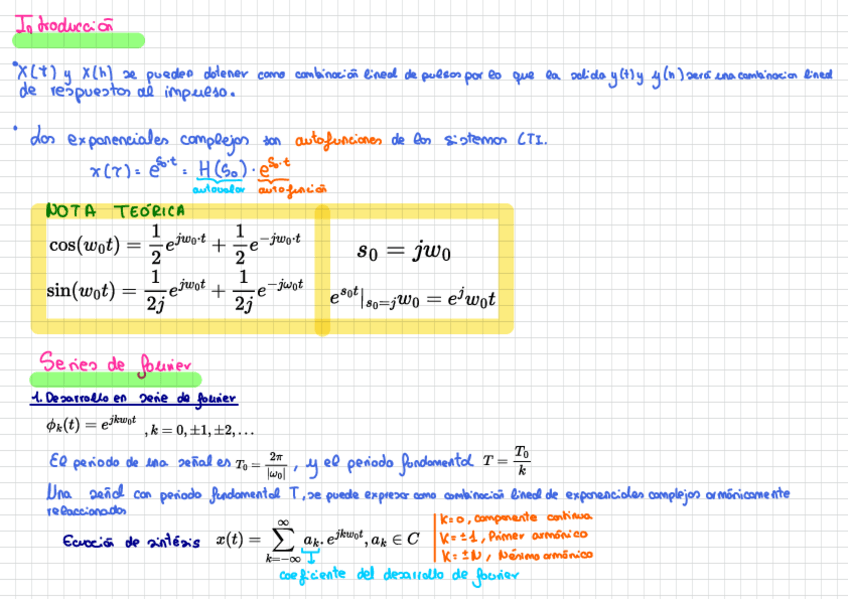 Introducción
• X(t) y X(n) se pueden obtener como combinación lineal de pulsos por lo que la salida y(t) y y(n) será una combinacion lineal
de respuestas al impulso.
• Las exponenciales complejas son autofunciones de los sistemas LTI.
x(t) = e^{s₀·t} = H(s₀) · e^{s₀·t}
autovalor autofunción
NOTA TEÓRICA
cos(w₀t) = 1/2 e^{jw₀·t} + 1/2 e^{-jw₀·t}
s₀ = jw₀
sin(w₀t) = 1/2j e^{jw₀t} + 1/2j e^{-jω₀t}
e^{s₀t}|_{s₀=j}w₀ = e^j w₀t
Series de fourier
1. Desarrollo en serie de fourier
ϕ_k(t) = e^{jkw₀t} , k = 0, ±1, ±2, …
El periodo de una señal es T₀ = 2π/|ω₀| , y el periodo fundamental T = T₀/k
Una señal con periodo fundamental T, se puede expresar como combinación lineal de exponenciales complejas armónicamente
relaccionadas
Ecuación de síntesis x(t) = ∑_{k=-∞}^{∞} a_k. e^{jkw₀t}, a_k ∈ C
K=0, componente continua
K=±1, Primer armónico
K=±N, Nésimo armónico
coeficiente del desarrollo de fourier